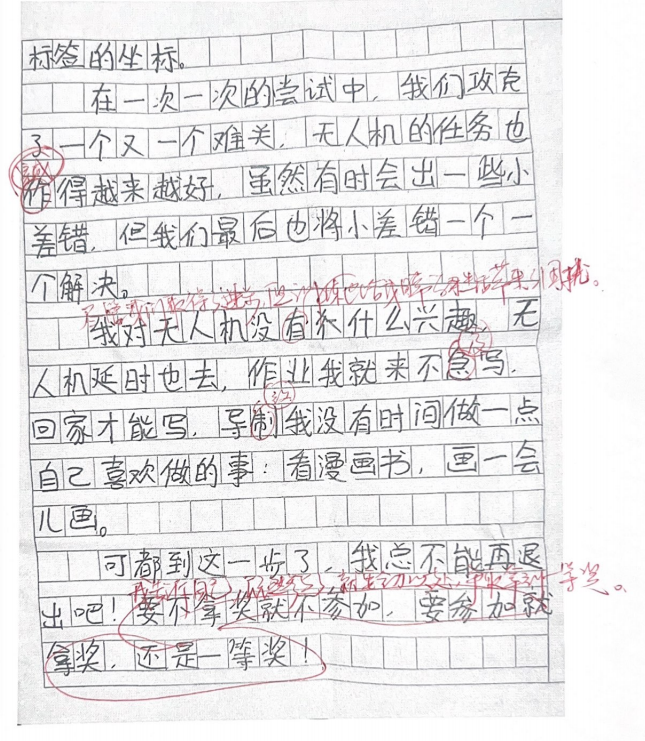 标签的坐标。
在一次一次的尝试中，我们攻克
了一个又一个难关，无人机的任务也
作得越来越好，虽然有时会出一些小
差错，但我们最后也将小差错一个一
个解决。
我对无人机没有什么兴趣，无
人机延时也去，作业我就来不急写，
回家才能写，导制我没有时间做一点
自己喜欢做的事：看漫画书，画一会
儿画。
可都到这一步了，我总不能再退
一等奖。
出吧！要么拿奖就不参加，要参加就
拿奖，还是一等奖！